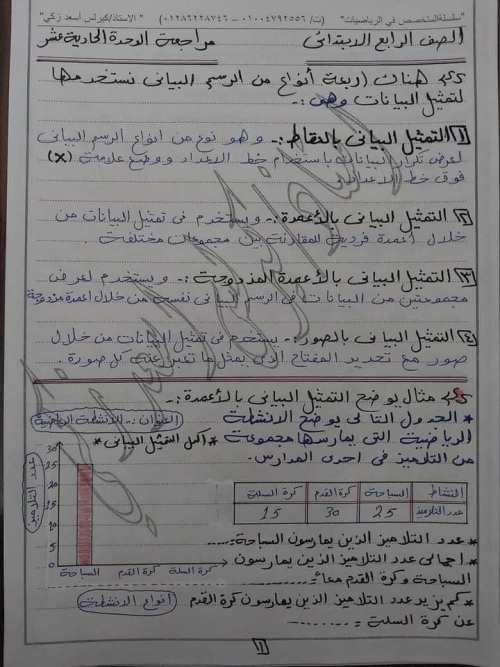 "سلسلة المتخصص في الرياضيات" (ت/ ٠١٠٠٤٧٩٢٥٥٦ – ٠١٢٨٦٢٢٨٧٤٦) "الأستاذ/كيرلس أسعد زكي"
الصف الرابع الابتدائى    مراجعة الوحدة الحادية عشر
هناك أربعة أنواع من الرسم البيانى نستخدمها
لتمثيل البيانات وهى :-
١ التمثيل البيانى بالنقاط :- وهو نوع من أنواع الرسم البيانى
لعرض تكرار البيانات باستخدام خط الأعداد ووضع علامة (x)
فوق خط الأعداد.
٢ التمثيل البيانى بالأعمدة :- ويستخدم فى تمثيل البيانات من
خلال أعمدة فردية للمقارنة بين مجموعات مختلفة .
٣ التمثيل البيانى بالأعمدة المزدوجة :- ويستخدم لعرض
مجموعتين من البيانات فى الرسم البيانى نفسه من خلال أعمدة مزدوجة
٤ التمثيل البيانى بالصور :- يستخدم فى تمثيل البيانات من خلال
صور مع تحديد المفتاح الذى يمثل ما تعبر عنه كل صورة .
مثال يوضح التمثيل البيانى بالأعمدة :-
* الجدول التالى يوضح الأنشطة
العنوان :- الأنشطة الرياضية
الرياضية التى يمارسها مجموعة
* أكمل التمثيل البيانى *
من التلاميذ فى احدى المدارس.
عدد التلاميذ
30
25
20
15
10
5
0
السباحة    كرة القدم    كرة السلة
أنواع الأنشطة
النشاط    السباحة    كرة القدم    كرة السلة
عدد التلاميذ    25    30    15
* عدد التلاميذ الذين يمارسون السباحة = .....
* إجمالى عدد التلاميذ الذين يمارسون
السباحة وكرة القدم معًا = ............
* كم يزيد عدد التلاميذ الذين يمارسون كرة القدم
عن كرة السلة = .........
١